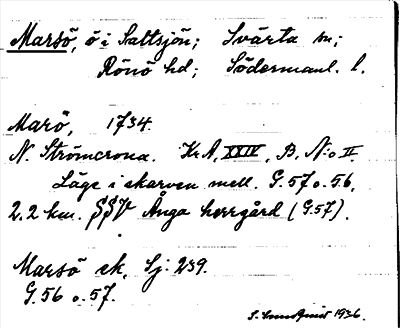 Marsö, ö i Saltsjön; Svärta sn;
Rönö hd; Södermanl. l.
Marö, 1734.
N. Strömcrona. Kr. A, XXIV, B, N:o II.
Läge i skarven mell. G.57 o. 56,
2,2 km. SSV Ånga herrgård (G.57).
Marsö sk, Sj: 239.
G.56 o. 57.
1936.